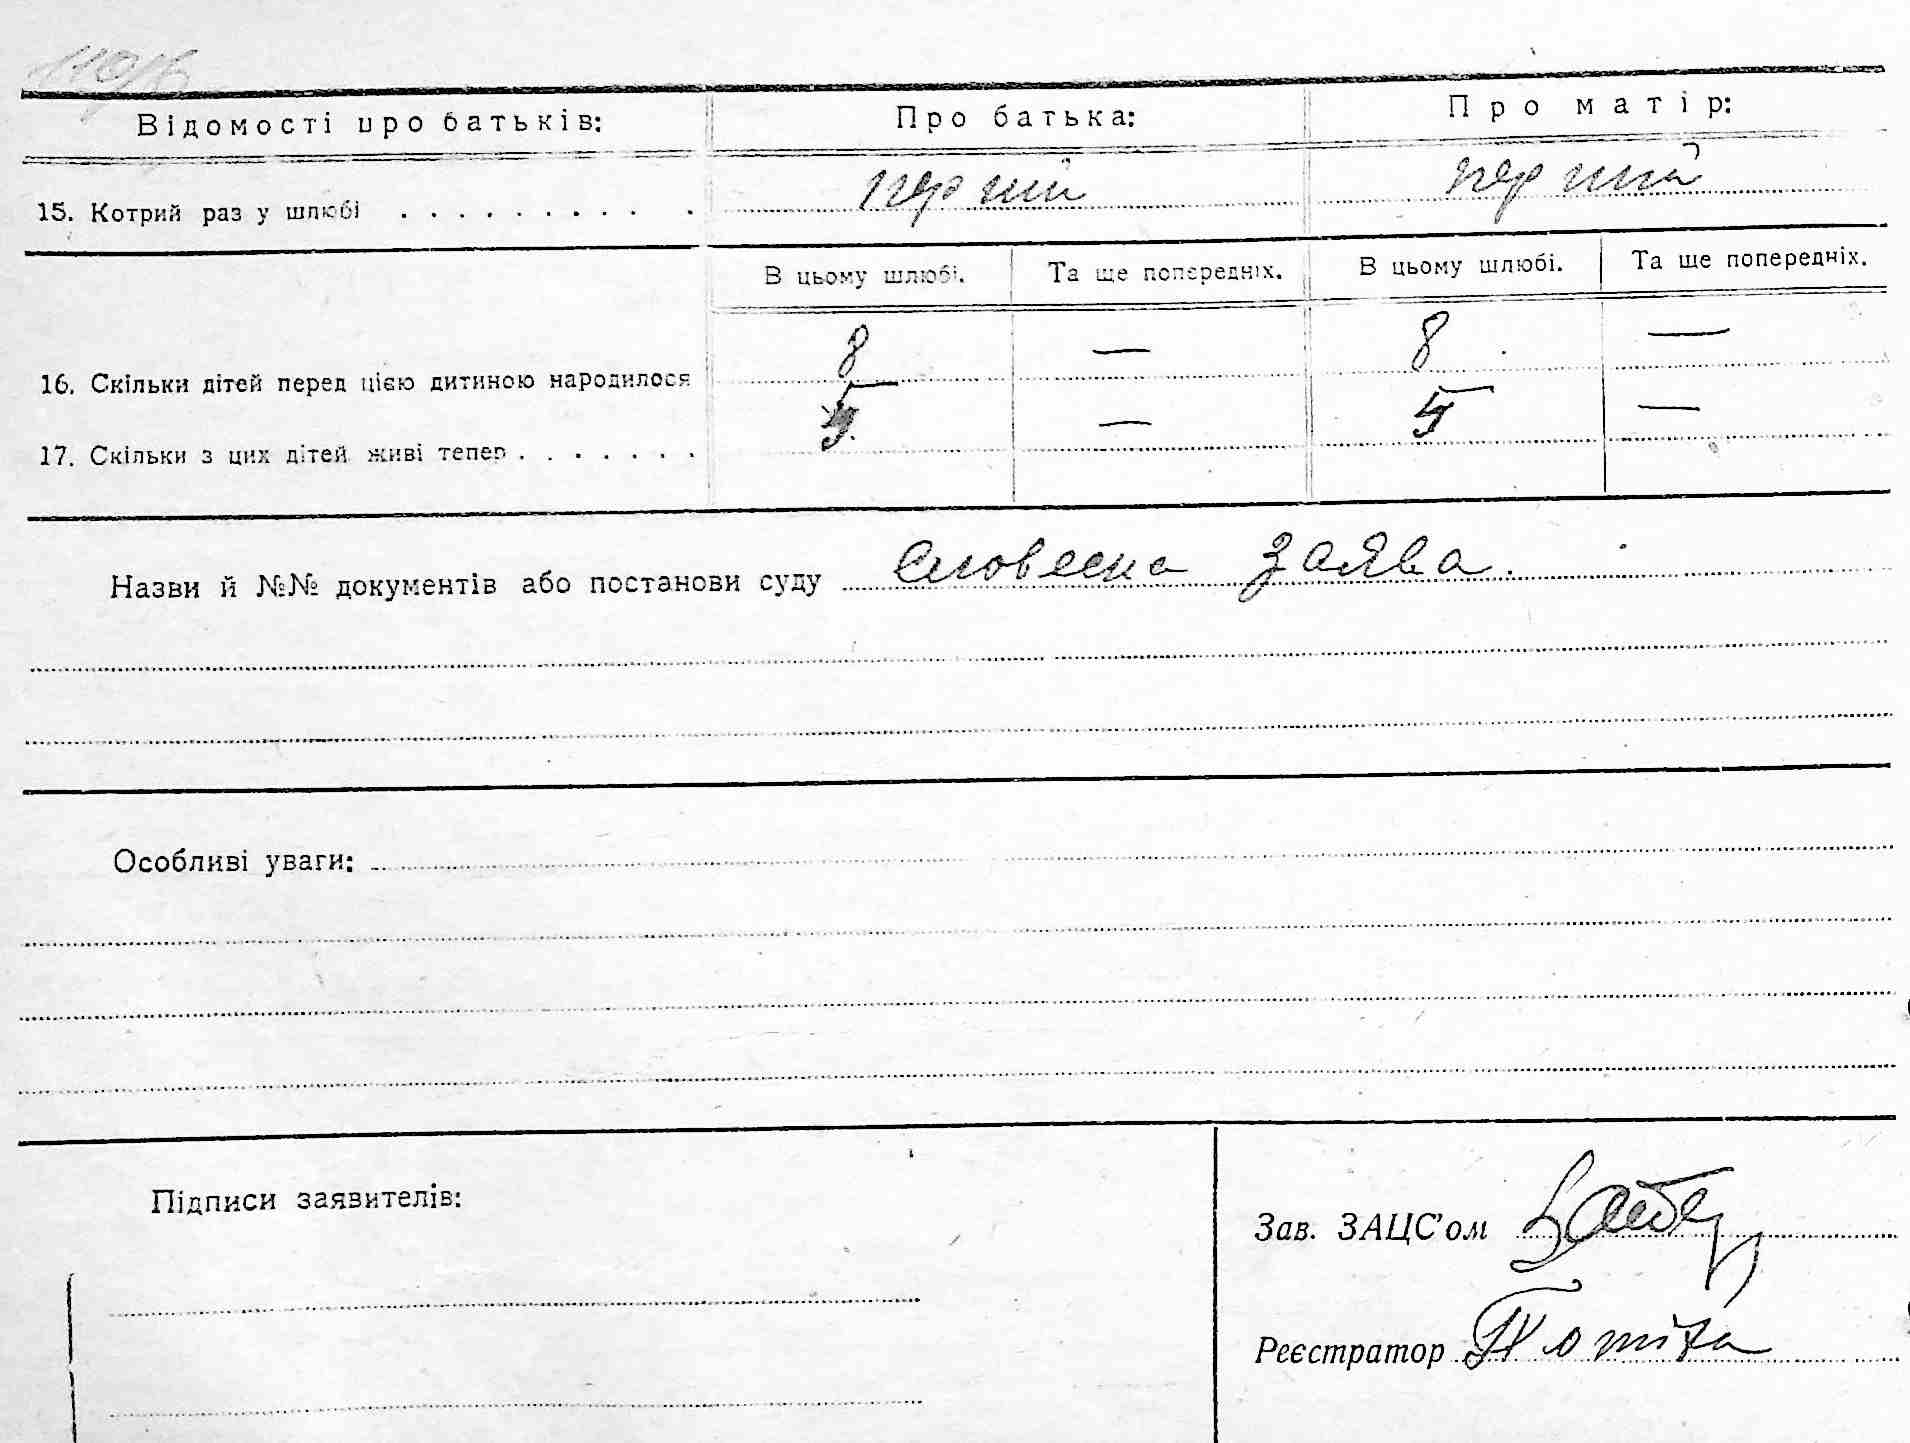 Відомості про батьків: Про батька: Про матір:
15. Котрий раз у шлюбі . . . . . . . . . . перший перший
В цьому шлюбі. Та ще попередніх. В цьому шлюбі. Та ще попередніх.
16. Скільки дітей перед цією дитиною народилося 8 — 8 —
17. Скільки з цих дітей живі тепер . . . . . . . 5 — 5 —
Назви й №№ документів або постанови суду словесна заява.
Особливі уваги:
Підписи заявителів:
Зав. ЗАЦС'ом
Реєстратор